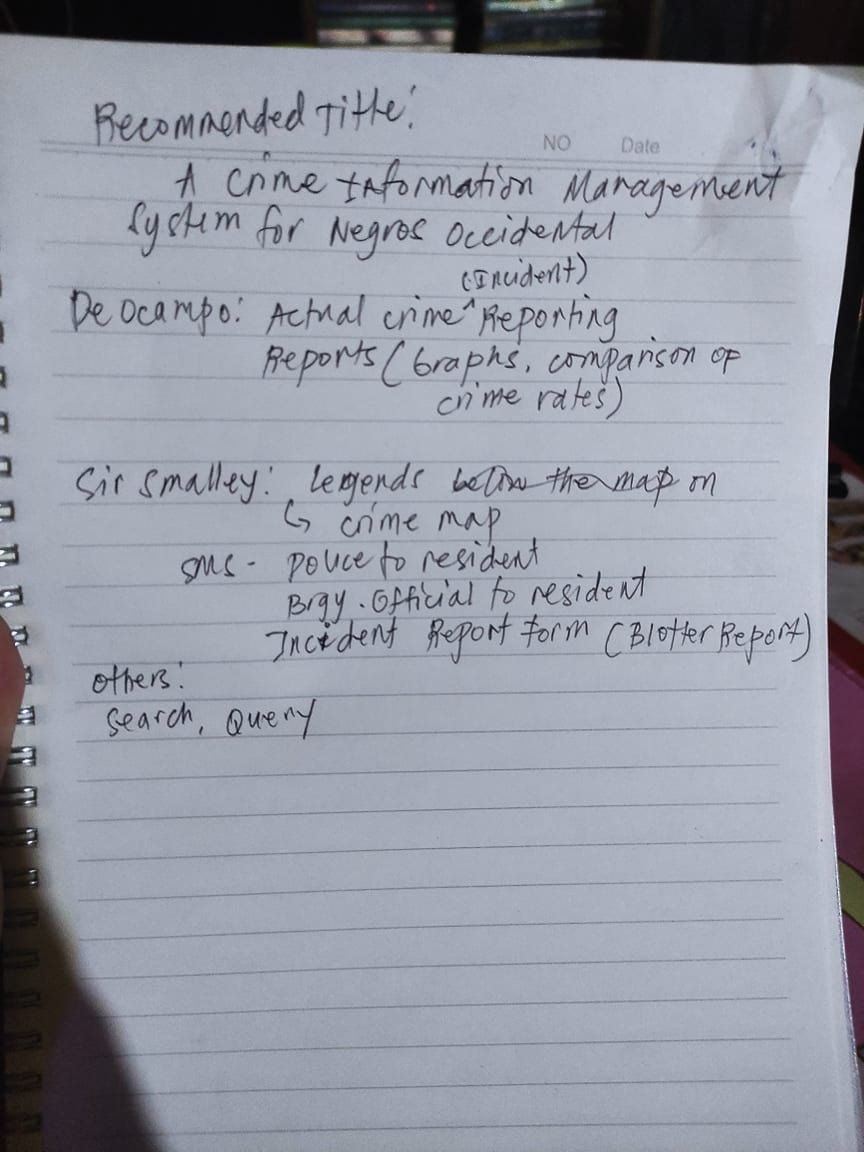 Recommended Title:
NO Date
A Crime Information Management
System for Negros Occidental
(Incident)
De Ocampo: Actual crime ^ Reporting
Reports (Graphs, comparison of
crime rates)
Sir Smalley: Legends below the map on
↳ crime map
SMS - Police to resident
Brgy. Official to resident
Incident Report Form (Blotter Report)
others:
Search, Query